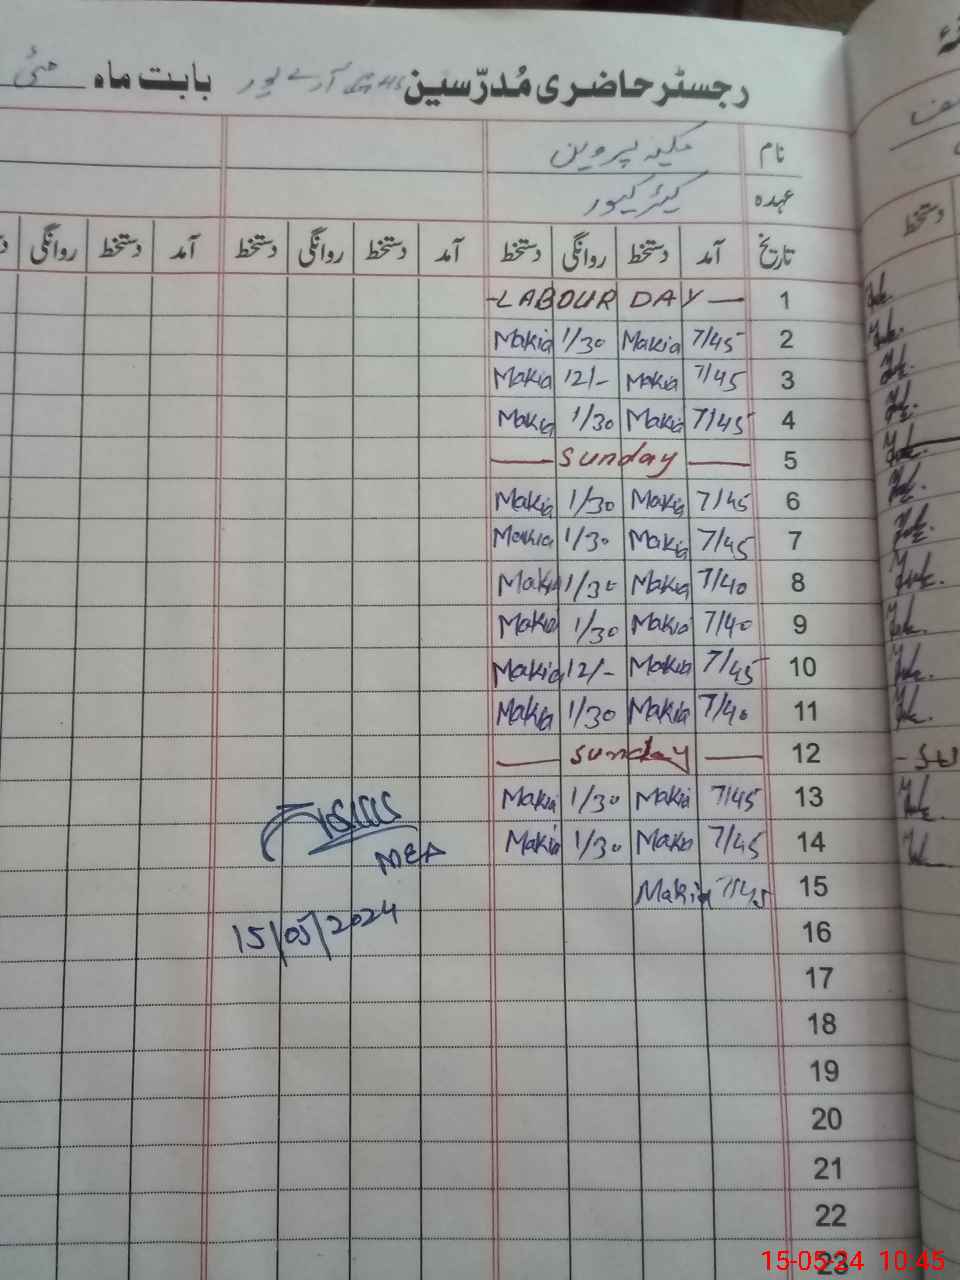 رجسٹر حاضری مُدرّسین بابت ماہ مئی
نام پروین
عہدہ کیئر گیور
تاریخ آمد دستخط روانگی دستخط آمد دستخط روانگی دستخط آمد دستخط روانگی
دستخط
1 — LABOUR DAY —
2 7/45 Makia 1/30 Makia
3 7/45 Makia 12/- Makia
4 7/45 Makia 1/30 Makia
5 — Sunday —
6 7/45 Makia 1/30 Makia
7 7/45 Makia 1/30 Makia
8 7/40 Makia 1/30 Makia
9 7/40 Makia 1/30 Makia
10 7/45 Makia 12/- Makia
11 7/40 Makia 1/30 Makia
12 — Sunday —
13 7/45 Makia 1/30 Makia
14 7/45 Makia 1/30 Makia
MEA
15 7/45 Makia
15/05/2024
16
17
18
19
20
21
22
23
15-05-24 10:45